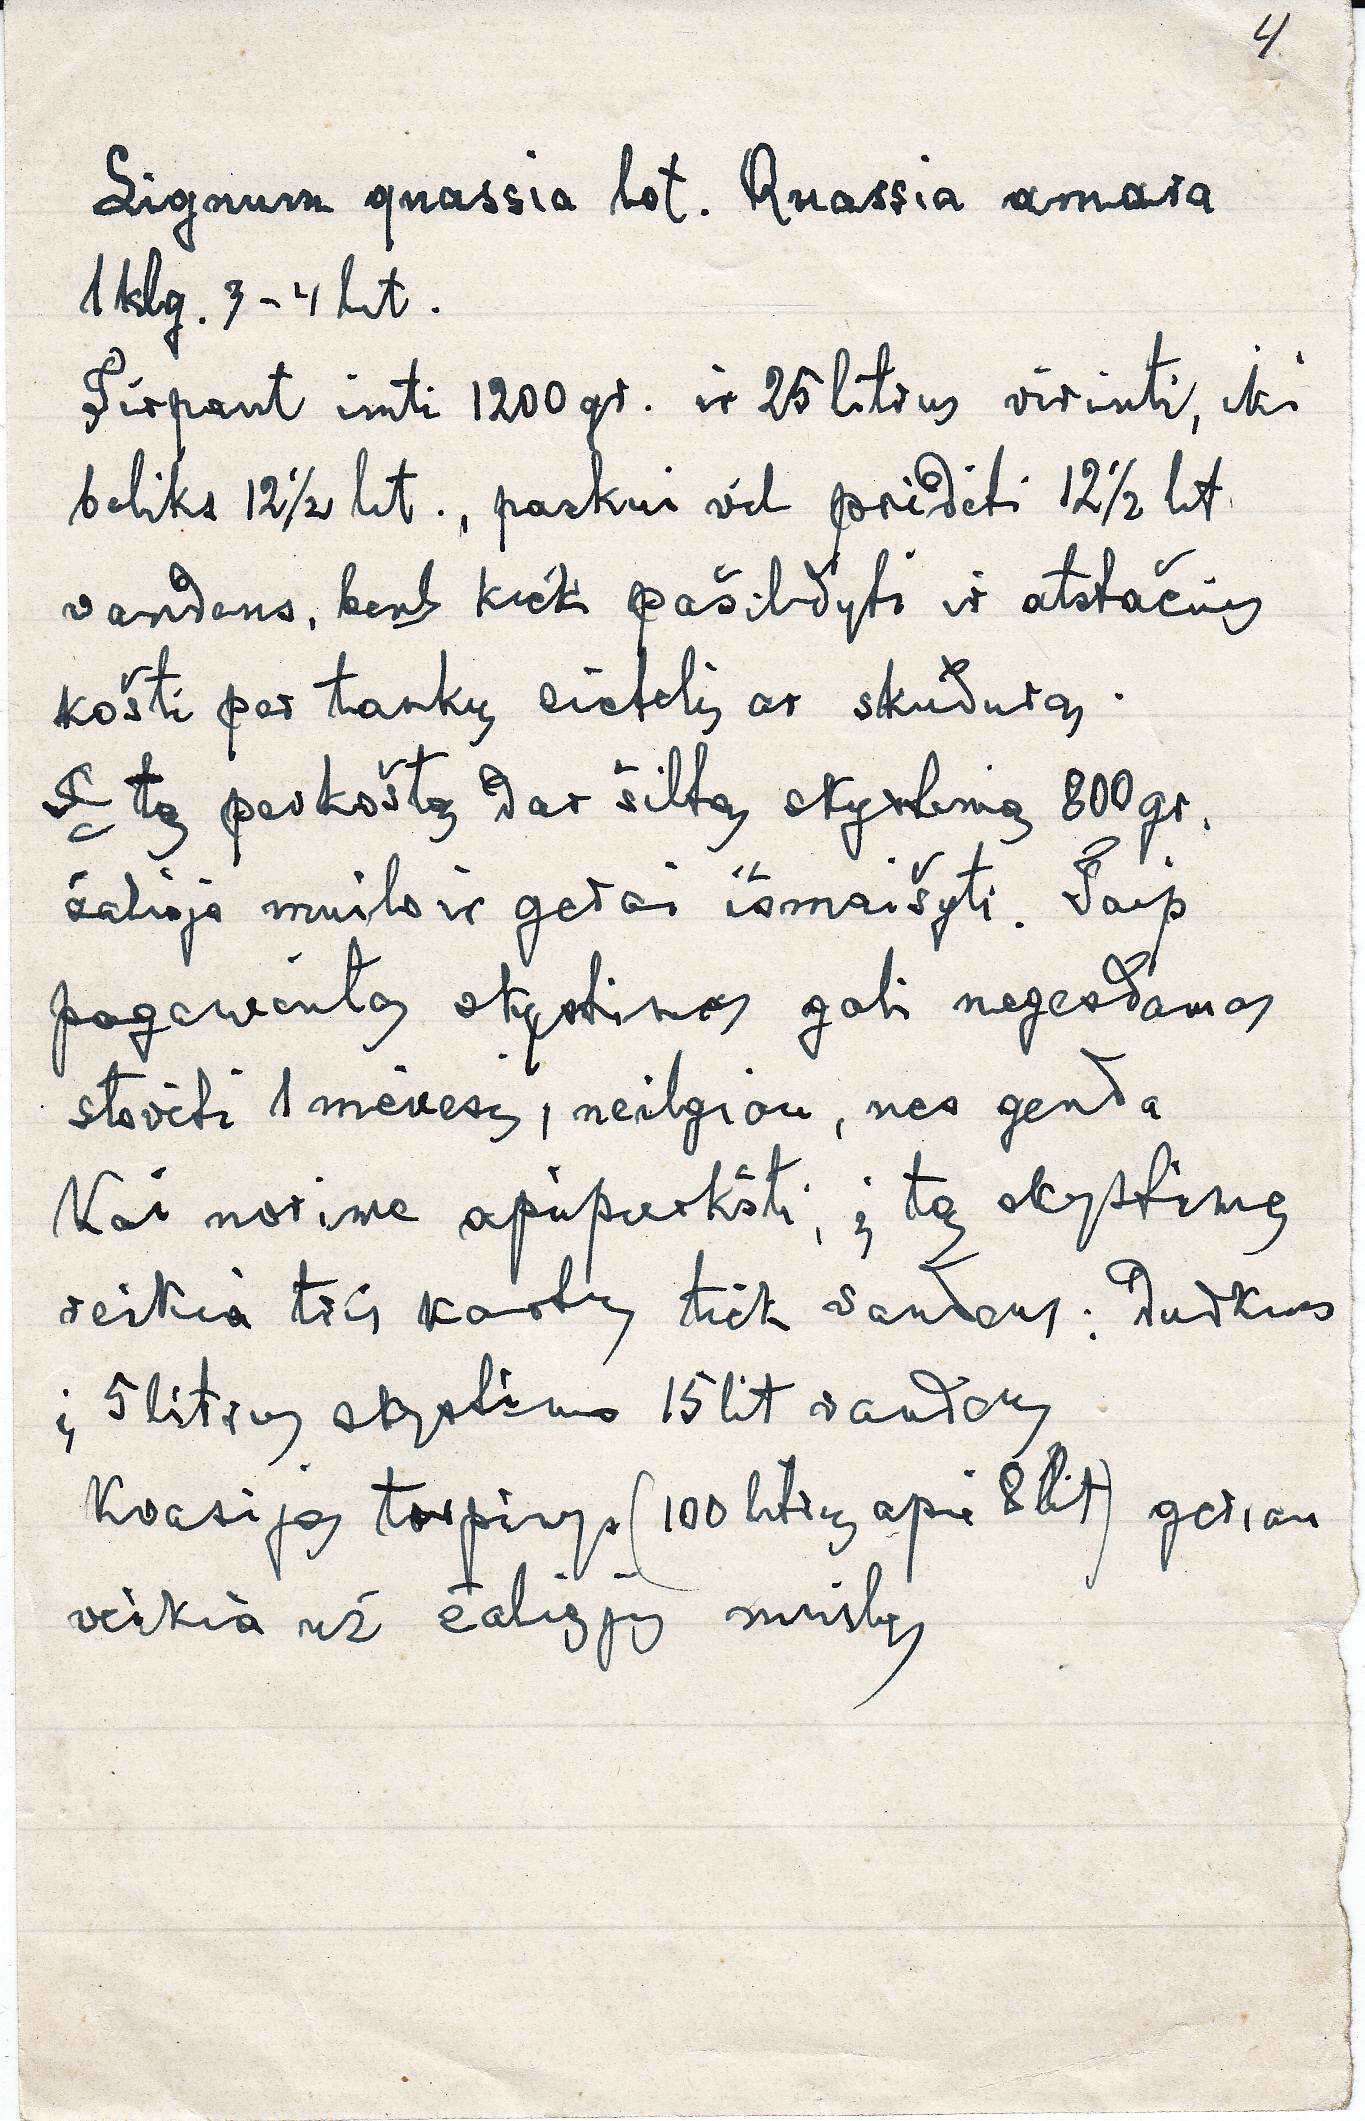 4
Lignum quassia lot. Quassia amara
1 klg. 3-4 lit.
Tirpant imti 1200 gr. ir 25 litrus virinti, iki
beliks 12 1/2 lit., paskui vėl pridėti 12 1/2 lit
vandens, kiek pašildyti ir atstačius
košti per tankų sietelį ar skudurą.
Į tą perkoštą dar šiltą skystimą 800 gr.
žaliojo muilo ir gerai išmaišyti. Taip
pagamintas skystimas gali negesdamas
stovėti 1 mėnesį, neilgiau, nes genda
Kai norime apipurkšti, į tą skystimą
reikia tris kartus tiek vandens:
į 5 litrus skystimo 15 lit vandens
Kvasijos tirpinys (100 litrų apie 8 lit) geriau
veikia už žaliąjį muilą